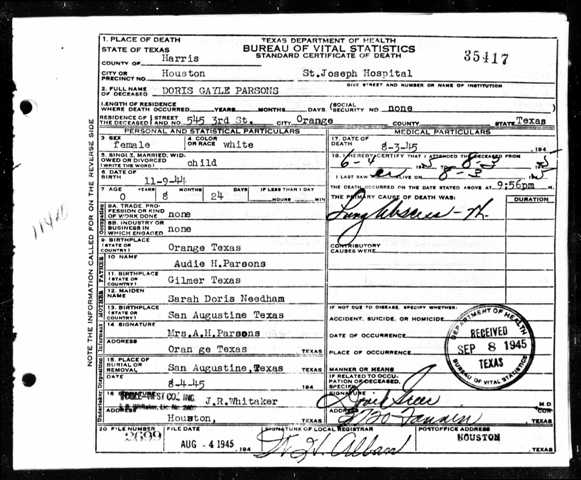 TEXAS DEPARTMENT OF HEALTH
BUREAU OF VITAL STATISTICS
STANDARD CERTIFICATE OF DEATH
35417
1. PLACE OF DEATH
STATE OF TEXAS
COUNTY OF Harris
CITY OR PRECINCT NO. Houston St.Joseph Hospital
GIVE STREET AND NUMBER OR NAME OF INSTITUTION
2. FULL NAME OF DECEASED DORIS GAYLE PARSONS
LENGTH OF RESIDENCE WHERE DEATH OCCURRED YEARS MONTHS DAYS (SOCIAL SECURITY NO. none
RESIDENCE OF THE DECEASED STREET AND NO. 545 3rd St. CITY Orange COUNTY STATE Texas
PERSONAL AND STATISTICAL PARTICULARS
3 SEX female
4 COLOR OR RACE white
5 SINGLE, MARRIED, WIDOWED OR DIVORCED (WRITE THE WORD) child
6 DATE OF BIRTH 11-9-44
7 AGE YEARS MONTHS DAYS IF LESS THAN 1 DAY
0 8 24 HOURS MIN
8A. TRADE, PROFESSION OR KIND OF WORK DONE none
8B. INDUSTRY OR BUSINESS IN WHICH ENGAGED none
9 BIRTHPLACE (STATE OR COUNTRY) Orange Texas
10 NAME Audie H.Parsons
11. BIRTHPLACE (STATE OR COUNTRY) Gilmer Texas
12. MAIDEN NAME Sarah Doris Needham
13. BIRTHPLACE (STATE OR COUNTRY) San Augustine Texas
14 SIGNATURE Mrs.A.H.Parsons
ADDRESS Oran ge Texas TEXAS
15. PLACE OF BURIAL OR REMOVAL San Augustine,Texas TEXAS
DATE 8-4-45
16 SIGNATURE J.R.Whitaker
ADDRESS Houston, TEXAS
MEDICAL PARTICULARS
17. DATE OF DEATH 8-3-45 194
18. I HEREBY CERTIFY THAT I ATTENDED THE DECEASED FROM
6-4 8-3
I LAST SAW ALIVE ON 8-3
THE DEATH OCCURRED ON THE DATE STATED ABOVE AT 9:56pm M.
THE PRIMARY CAUSE OF DEATH WAS: DURATION
Lung Abscess
CONTRIBUTORY CAUSES WERE:
IF NOT DUE TO DISEASE, SPECIFY WHETHER:
ACCIDENT, SUICIDE, OR HOMICIDE
DATE OF OCCURRENCE
PLACE OF OCCURRENCE
MANNER OR MEANS
IF RELATED TO OCCUPATION OF DECEASED, SPECIFY
SIGNATURE M D
ADDRESS TEXAS
DEPARTMENT OF HEALTH
RECEIVED
SEP 8 1945
TEXAS
BUREAU OF VITAL STATISTICS
20 FILE NUMBER 2699
FILE DATE AUG - 4 1945 194
SIGNATURE OF LOCAL REGISTRAR
POSTOFFICE ADDRESS HOUSTON TEXAS
NOTE THE INFORMATION CALLED FOR ON THE REVERSE SIDE